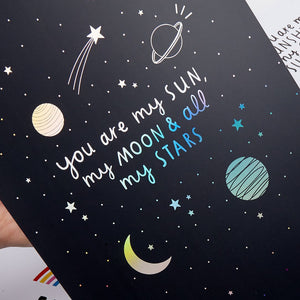 you are my SUN,
my MOON & all
my STARS